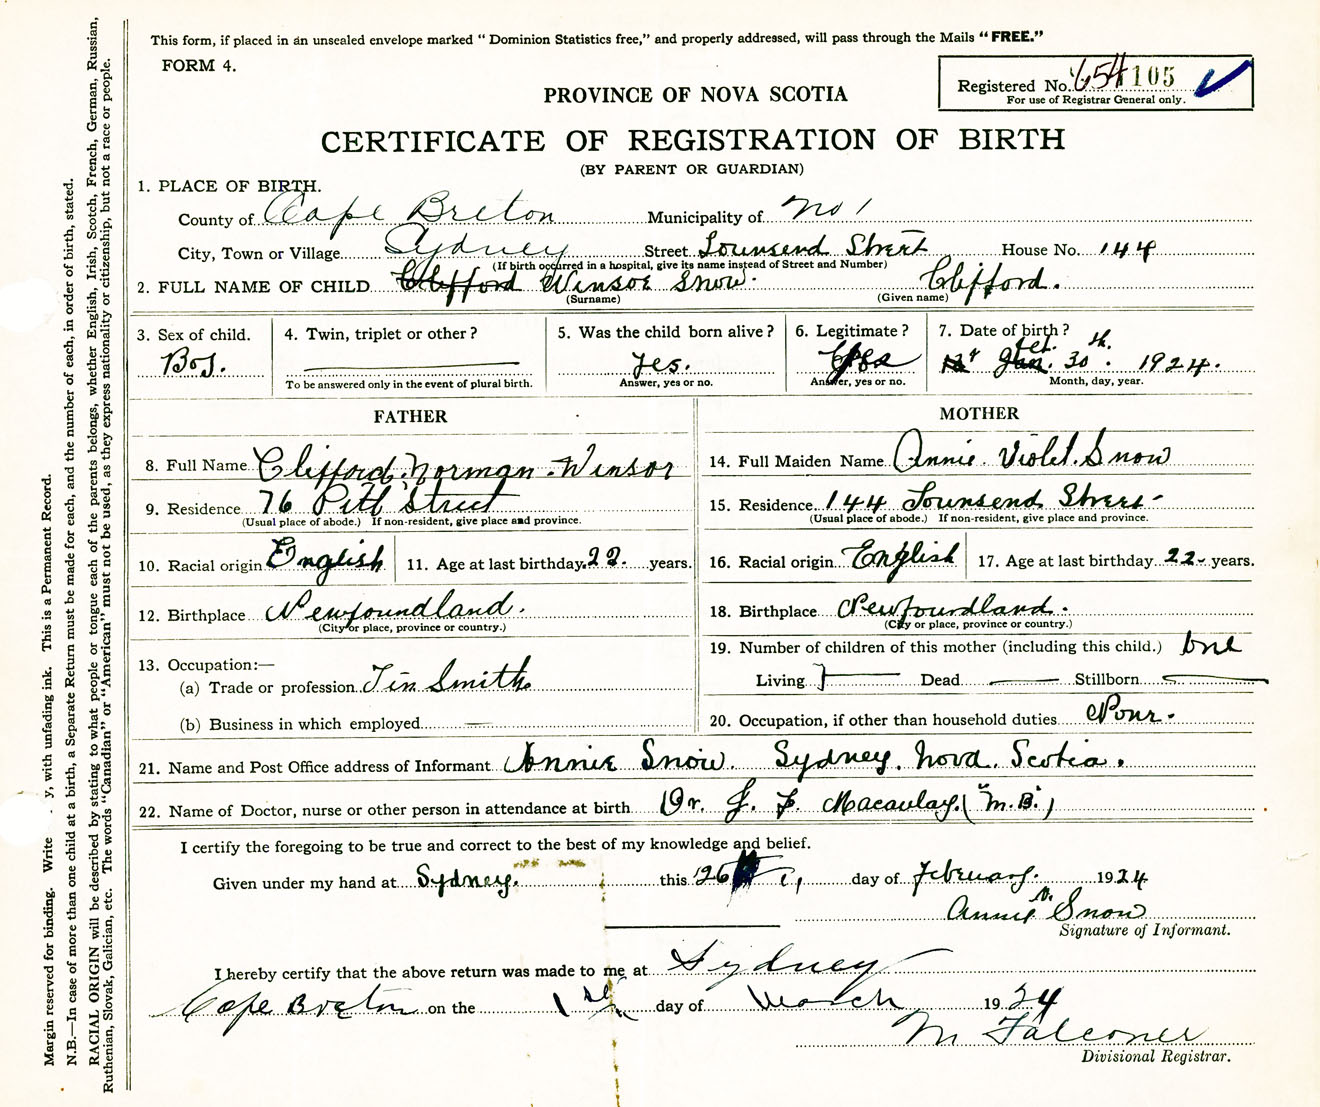 This form, if placed in an unsealed envelope marked “ Dominion Statistics free,” and properly addressed, will pass through the Mails “ FREE.”
FORM 4.
Registered No. 654105
For use of Registrar General only.
PROVINCE OF NOVA SCOTIA
CERTIFICATE OF REGISTRATION OF BIRTH
(BY PARENT OR GUARDIAN)
1. PLACE OF BIRTH.
County of Cape Breton Municipality of No 1
City, Town or Village Sydney Street Townsend Street House No. 144
(If birth occurred in a hospital, give its name instead of Street and Number)
2. FULL NAME OF CHILD Clifford Winsor Snow. Clifford.
(Surname) (Given name)
3. Sex of child. 4. Twin, triplet or other ? 5. Was the child born alive ? 6. Legitimate ? 7. Date of birth ?
Boy. yes. Jan. 30th. 1924.
To be answered only in the event of plural birth. Answer, yes or no. Answer, yes or no. Month, day, year.
FATHER MOTHER
8. Full Name Clifford Norman Winsor 14. Full Maiden Name Annie Violet Snow
9. Residence 76 Pitt Street 15. Residence 144 Townsend Street
(Usual place of abode.) If non-resident, give place and province. (Usual place of abode.) If non-resident, give place and province.
10. Racial origin English 11. Age at last birthday 23. years. 16. Racial origin English 17. Age at last birthday 22 years.
12. Birthplace Newfoundland. 18. Birthplace Newfoundland.
(City or place, province or country.) (City or place, province or country.)
13. Occupation:— 19. Number of children of this mother (including this child.) one
(a) Trade or profession Tin Smith Living Dead Stillborn
(b) Business in which employed 20. Occupation, if other than household duties
21. Name and Post Office address of Informant Annie Snow. Sydney. Nova Scotia.
22. Name of Doctor, nurse or other person in attendance at birth Dr. J. F. Macaulay. (M.B.)
I certify the foregoing to be true and correct to the best of my knowledge and belief.
Given under my hand at Sydney. this 26 day of February. 1924
Annie V. Snow
Signature of Informant.
I hereby certify that the above return was made to me at Sydney
Cape Breton on the 1st day of March 1924
M Falconer
Divisional Registrar.
Margin reserved for binding. Write y, with unfading ink. This is a Permanent Record.
N.B.—In case of more than one child at a birth, a Separate Return must be made for each, and the number of each, in order of birth, stated.
RACIAL ORIGIN will be described by stating to what people or tongue each of the parents belongs, whether English, Irish, Scotch, French, German, Russian,
Ruthenian, Slovak, Galician, etc. The words “Canadian” or “American” must not be used, as they express nationality or citizenship, but not a race or people.